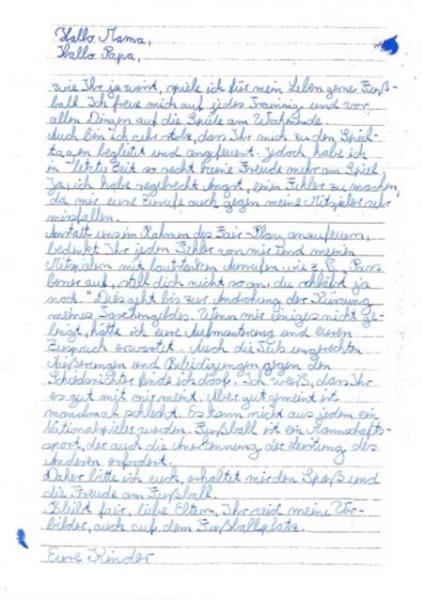 Hallo Mama,
Hallo Papa,
wie Ihr ja wisst, spiele ich für mein Leben gerne Fuß-
ball. Ich freue mich auf jedes Training und vor
allen Dingen auf die Spiele am Wochenende.
Auch bin ich sehr stolz, dass Ihr mich zu den Spiel-
tagen begleitet und anfeuert. Jedoch habe ich
in letzter Zeit so recht keine Freude mehr am Spiel.
Ja, ich habe regelrecht Angst, einen Fehler zu machen,
da mir eure Zurufe auch gegen meine Mitspieler sehr
missfallen.
Anstatt uns im Rahmen des Fair-Play anzufeuern,
bedenkt Ihr jeden Fehler von mir und meinen
Mitspielern mit lautstarken Zurufen wie z.B. "Pass
besser auf, stell dich nicht so an, du schläfst ja
noch." Dies geht bis zur Androhung der Kürzung
meines Taschengeldes. Wenn mir einiges nicht ge-
lingt, hätte ich eure Aufmunterung und euren
Zuspruch erwartet. Auch die teils ungerechten
Äußerungen und Beleidigungen gegen den
Schiedsrichter finde ich doof. Ich weiß, dass Ihr
es gut mit mir meint. Aber gut gemeint ist
manchmal schlecht. Es kann nicht aus jedem ein
Nationalspieler werden. Fußball ist ein Mannschafts-
sport, der auch die Anerkennung der Leistung des
Anderen erfordert.
Daher bitte ich euch, erhaltet mir den Spaß und
die Freude am Fußball.
Bleibt fair, liebe Eltern, Ihr seid meine Vor-
bilder, auch auf dem Fußballplatz.
Eure Kinder